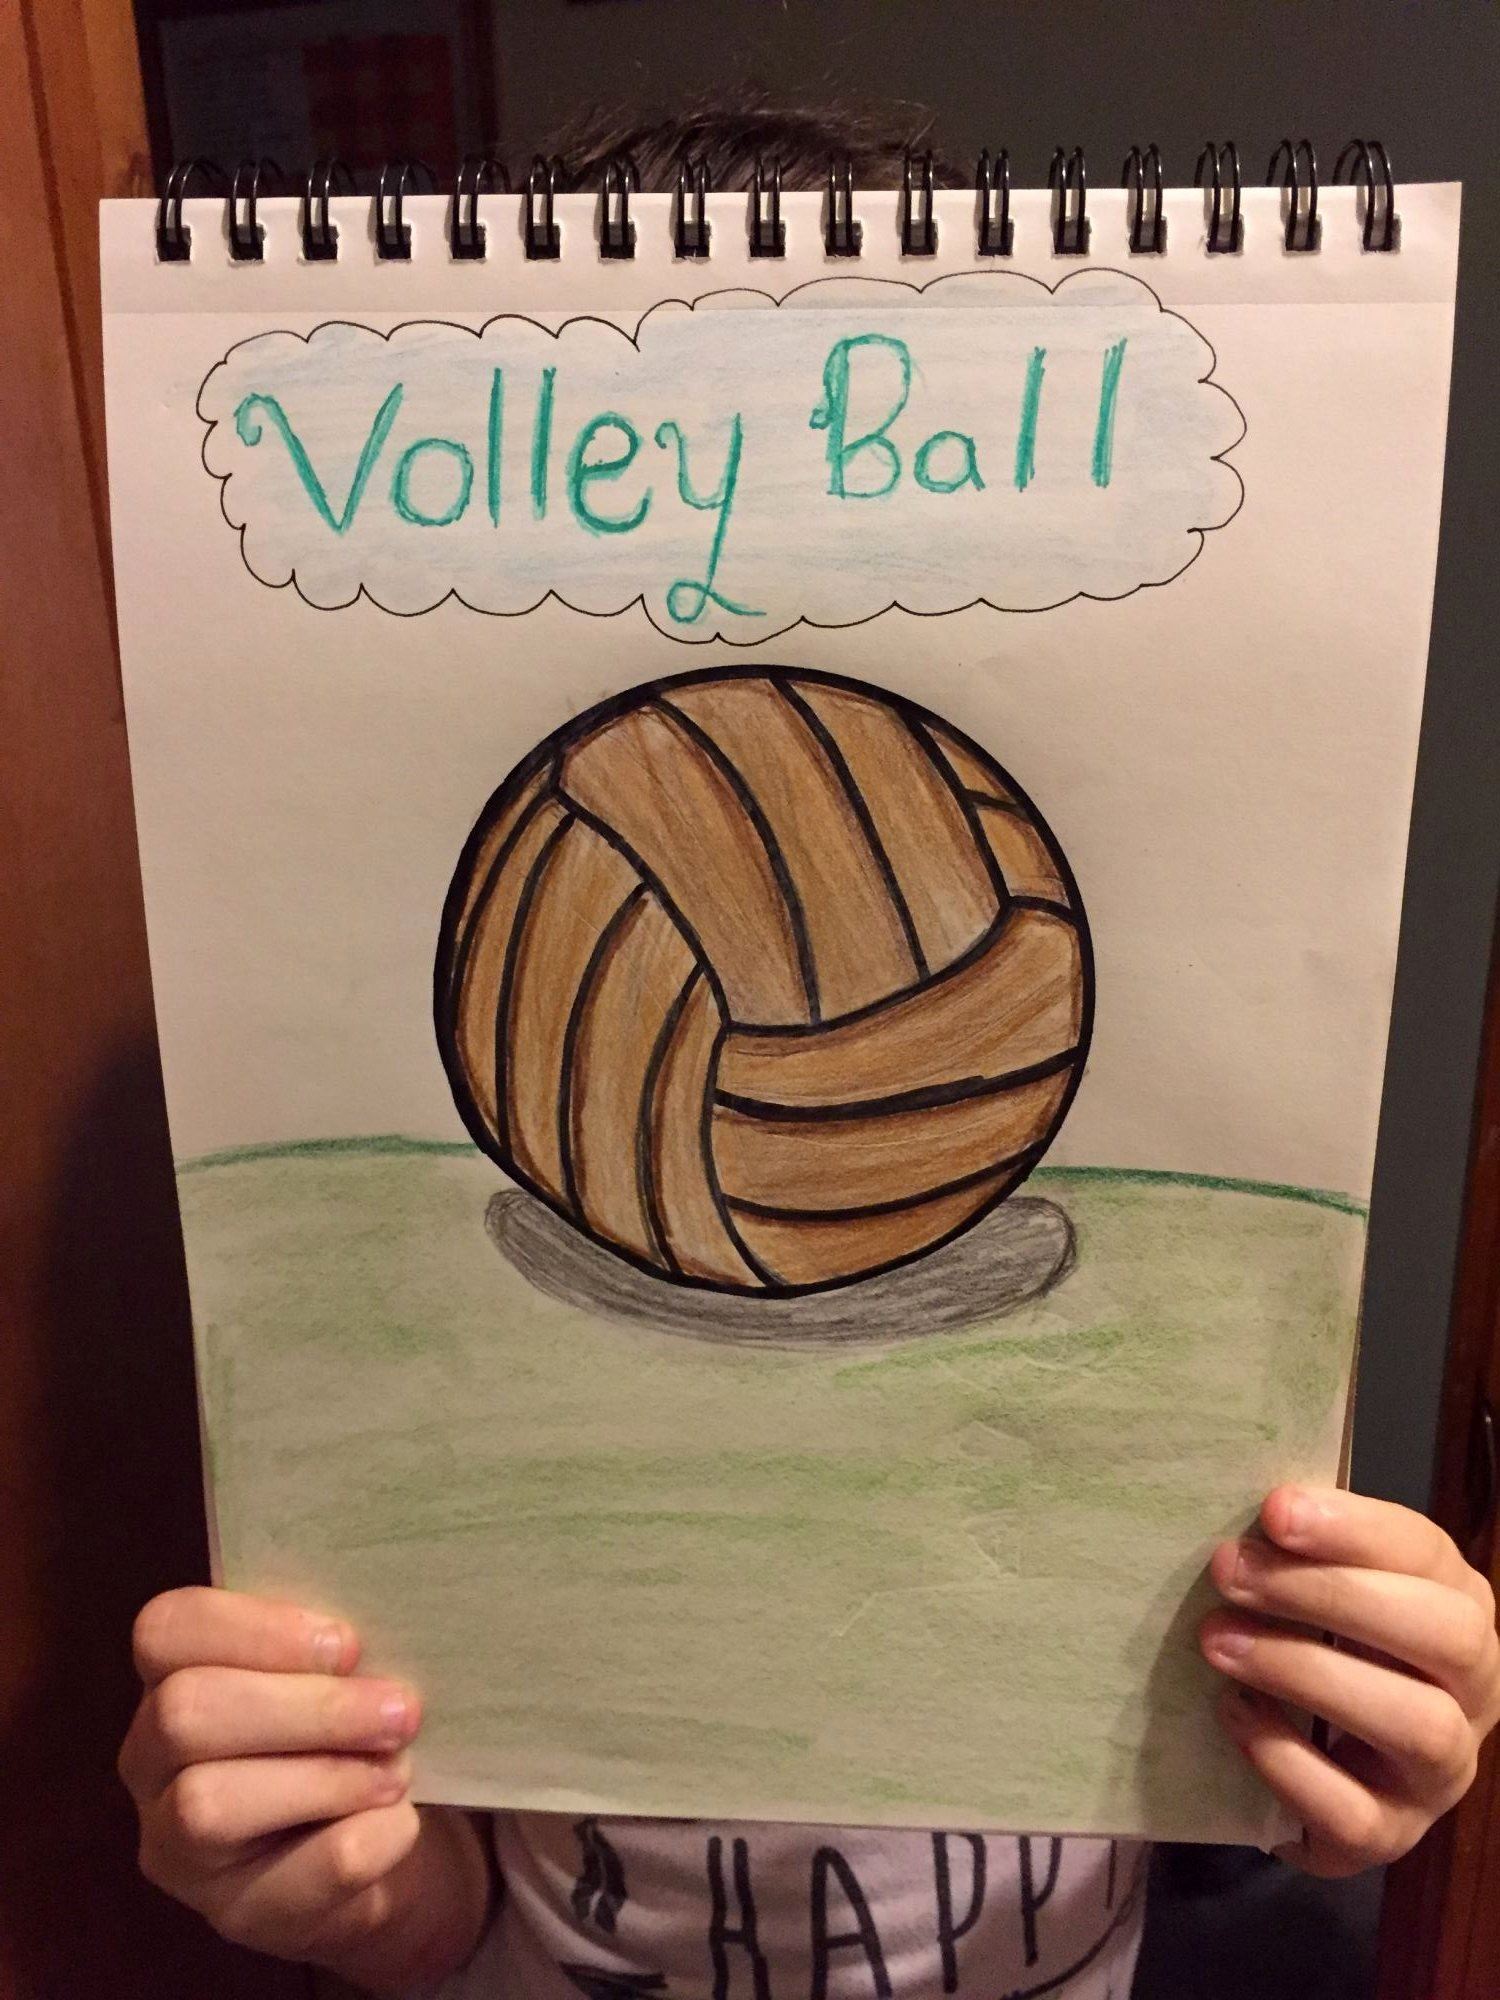 Volley Ball
HAPP